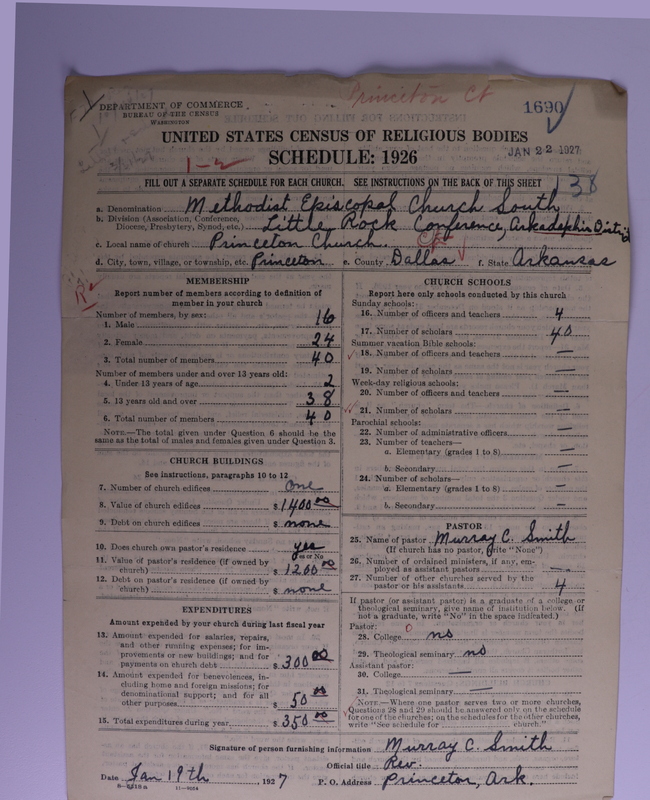 Princeton Ct
DEPARTMENT OF COMMERCE
BUREAU OF THE CENSUS
WASHINGTON
1690
UNITED STATES CENSUS OF RELIGIOUS BODIES
JAN 22 1927
1-2
SCHEDULE: 1926
FILL OUT A SEPARATE SCHEDULE FOR EACH CHURCH. SEE INSTRUCTIONS ON THE BACK OF THIS SHEET
138
a. Denomination Methodist Episcopal Church South
b. Division (Association, Conference, Diocese, Presbytery, Synod, etc.) Little Rock Conference, Arkadelphia District
c. Local name of church Princeton Church.
d. City, town, village, or township, etc. Princeton e. County Dallas f. State Arkansas
MEMBERSHIP
Report number of members according to definition of
member in your church
Number of members, by sex:
1. Male 16
2. Female 24
3. Total number of members 40
Number of members under and over 13 years old:
4. Under 13 years of age 2
5. 13 years old and over 38
6. Total number of members 40
NOTE.—The total given under Question 6 should be the
same as the total of males and females given under Question 3.
CHURCH BUILDINGS
See instructions, paragraphs 10 to 12
7. Number of church edifices One
8. Value of church edifices $ 1400 00
9. Debt on church edifices $ none
10. Does church own pastor's residence yes
Yes or No
11. Value of pastor's residence (if owned by
church) $ 1200 00
12. Debt on pastor's residence (if owned by
church) $ none
EXPENDITURES
Amount expended by your church during last fiscal year
13. Amount expended for salaries, repairs,
and other running expenses; for im-
provements or new buildings; and for
payments on church debt $ 300 00
14. Amount expended for benevolences, in-
cluding home and foreign missions; for
denominational support; and for all
other purposes $ 50 00
15. Total expenditures during year $ 350 00
CHURCH SCHOOLS
Report here only schools conducted by this church
Sunday schools:
16. Number of officers and teachers 4
17. Number of scholars 40
Summer vacation Bible schools:
18. Number of officers and teachers —
19. Number of scholars —
Week-day religious schools:
20. Number of officers and teachers —
21. Number of scholars —
Parochial schools:
22. Number of administrative officers —
23. Number of teachers—
a. Elementary (grades 1 to 8) —
b. Secondary —
24. Number of scholars—
a. Elementary (grades 1 to 8) —
b. Secondary —
PASTOR
25. Name of pastor Murray C. Smith
(If church has no pastor, write "None")
26. Number of ordained ministers, if any, em-
ployed as assistant pastors —
27. Number of other churches served by the
pastor or his assistants 4
If pastor (or assistant pastor) is a graduate of a college or
theological seminary, give name of institution below. (If
not a graduate, write "No" in the space indicated.)
Pastor: 0
28. College no
29. Theological seminary no
Assistant pastor:
30. College —
31. Theological seminary —
NOTE.—Where one pastor serves two or more churches,
Questions 28 and 29 should be answered only on the schedule
for one of the churches; on the schedules for the other churches,
write "See schedule for church."
Signature of person furnishing information Murray C. Smith
Official title Rev.
Date Jan 19th, 1927 P. O. Address Princeton, Ark.